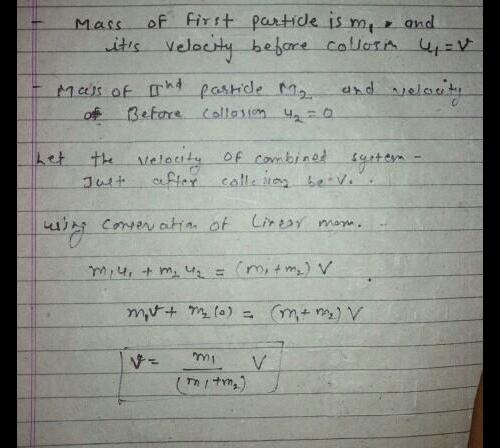 - Mass of first particle is m₁, and
it's velocity before collosm u₁ = v
- Mass of IInd particle M₂ and velocity
of Before collosion u₂ = 0
Let the velocity of combined system -
Just after be V.
using conservation of Linear mom.
m₁u₁ + m₂u₂ = (m₁+m₂) V
m₁v + m₂(0) = (m₁+m₂) V
v = m₁/(m₁+m₂) V